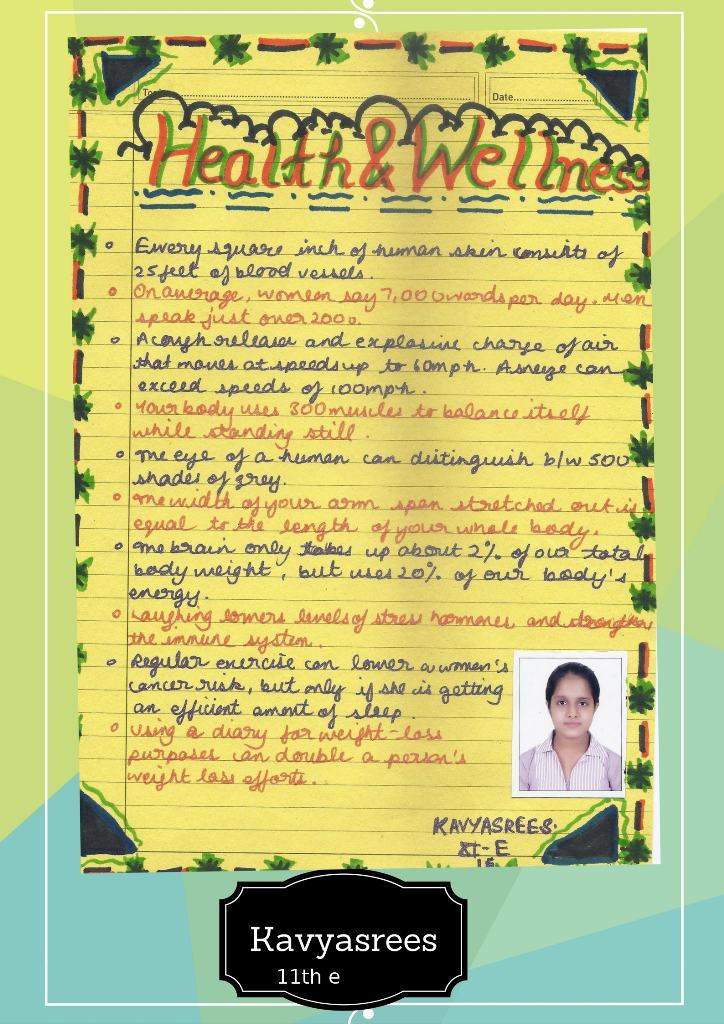 Topic
Date
Health & Wellness
Every square inch of human skin consists of
25 feet of blood vessels.
On average, women say 7,000 words per day. Men
speak just over 2000.
A cough releases and explosive charge of air
that moves at speeds up to 60mph. A sneize can
exceed speeds of 100mph.
Your body uses 300 muscles to balance itself
while standing still.
The eye of a human can distinguish b/w 500
shades of grey.
The width of your arm span stretched out is
equal to the length of your whole body.
The brain only takes up about 2% of our total
body weight, but uses 20% of our body's
energy.
Laughing lowers levels of stress hormones, and strengthen
the immune system.
Regular exercise can lower a women's
cancer risk, but only if she is getting
an efficient amont of sleep.
Using a diary for weight-loss
purposes can double a person's
weight loss efforts.
KAVYASREES
XI-E
15
Kavyasrees
11th e